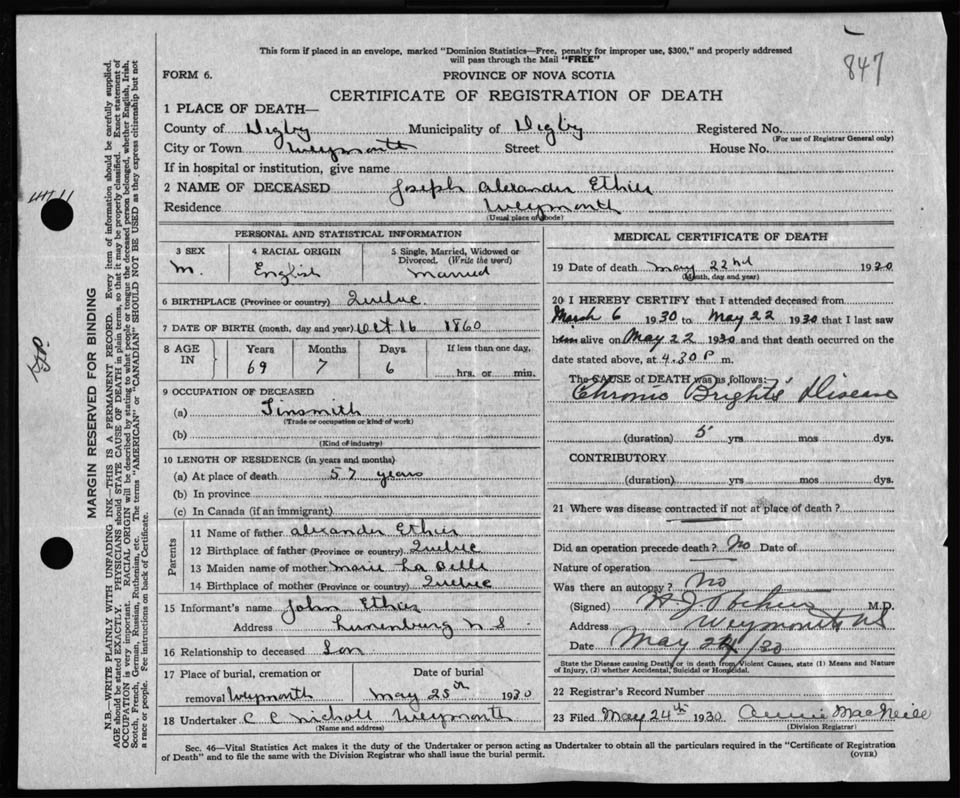 This form if placed in an envelope, marked "Dominion Statistics—Free, penalty for improper use, $300," and properly addressed
will pass through the Mail "FREE"
847
FORM 6.
PROVINCE OF NOVA SCOTIA
CERTIFICATE OF REGISTRATION OF DEATH
1 PLACE OF DEATH—
County of Digby Municipality of Digby Registered No.
(For use of Registrar General only)
City or Town Weymouth Street House No.
If in hospital or institution, give name
2 NAME OF DECEASED Joseph Alexander Ethier
Residence Weymouth
(Usual place of abode)
PERSONAL AND STATISTICAL INFORMATION
3 SEX 4 RACIAL ORIGIN 5 Single, Married, Widowed or
Divorced. (Write the word)
M. English Married
6 BIRTHPLACE (Province or country) Quebec.
7 DATE OF BIRTH (month, day and year) Oct 16 1860
8 AGE IN Years Months Days If less than one day,
69 7 6 hrs. or min.
9 OCCUPATION OF DECEASED
(a) Tinsmith
(Trade or occupation or kind of work)
(b)
(Kind of industry)
10 LENGTH OF RESIDENCE (in years and months)
(a) At place of death 57 years
(b) In province
(c) In Canada (if an immigrant)
Parents
11 Name of father Alexander Ethier
12 Birthplace of father (Province or country) Quebec
13 Maiden name of mother Marie La Belle
14 Birthplace of mother (Province or country) Quebec
15 Informant's name John Ethier
Address Lunenburg N S
16 Relationship to deceased Son
17 Place of burial, cremation or Date of burial
removal Weymouth May 25th 1930
18 Undertaker C C Nichols Weymouth
(Name and address)
MEDICAL CERTIFICATE OF DEATH
19 Date of death May 22nd 1930
(Month, day and year)
20 I HEREBY CERTIFY that I attended deceased from
March 6 1930 to May 22 1930 that I last saw
him alive on May 22 1930 and that death occurred on the
date stated above, at 4.30 P m.
The CAUSE of DEATH was as follows:
Chronic Brights Disease
(duration) 5 yrs mos dys.
CONTRIBUTORY
(duration) yrs mos dys.
21 Where was disease contracted if not at place of death?
Did an operation precede death? No Date of
Nature of operation
Was there an autopsy? No
(Signed) M.D.
Address Weymouth NS
Date May 24/30
State the Disease causing Death, or in death from Violent Causes, state (1) Means and Nature
of Injury, (2) whether Accidental, Suicidal or Homicidal.
22 Registrar's Record Number
23 Filed May 24th 1930. Annie MacNeill
(Division Registrar)
Sec. 46—Vital Statistics Act makes it the duty of the Undertaker or person acting as Undertaker to obtain all the particulars required in the "Certificate of Registration
of Death" and to file the same with the Division Registrar who shall issue the burial permit. (OVER)
MARGIN RESERVED FOR BINDING
N.B.—WRITE PLAINLY WITH UNFADING INK—THIS IS A PERMANENT RECORD. Every item of information should be carefully supplied.
AGE should be stated EXACTLY. PHYSICIANS should STATE CAUSE OF DEATH in plain terms, so that it may be properly classified. Exact statement of
OCCUPATION is very important. RACIAL ORIGIN will be described by stating to what people or tongue the deceased person belonged, whether English, Irish,
Scotch, French, German, Russian, Ruthenian, etc. The terms "AMERICAN" or "CANADIAN" SHOULD NOT BE USED as they express citizenship but not
a race or people. See instructions on back of Certificate.